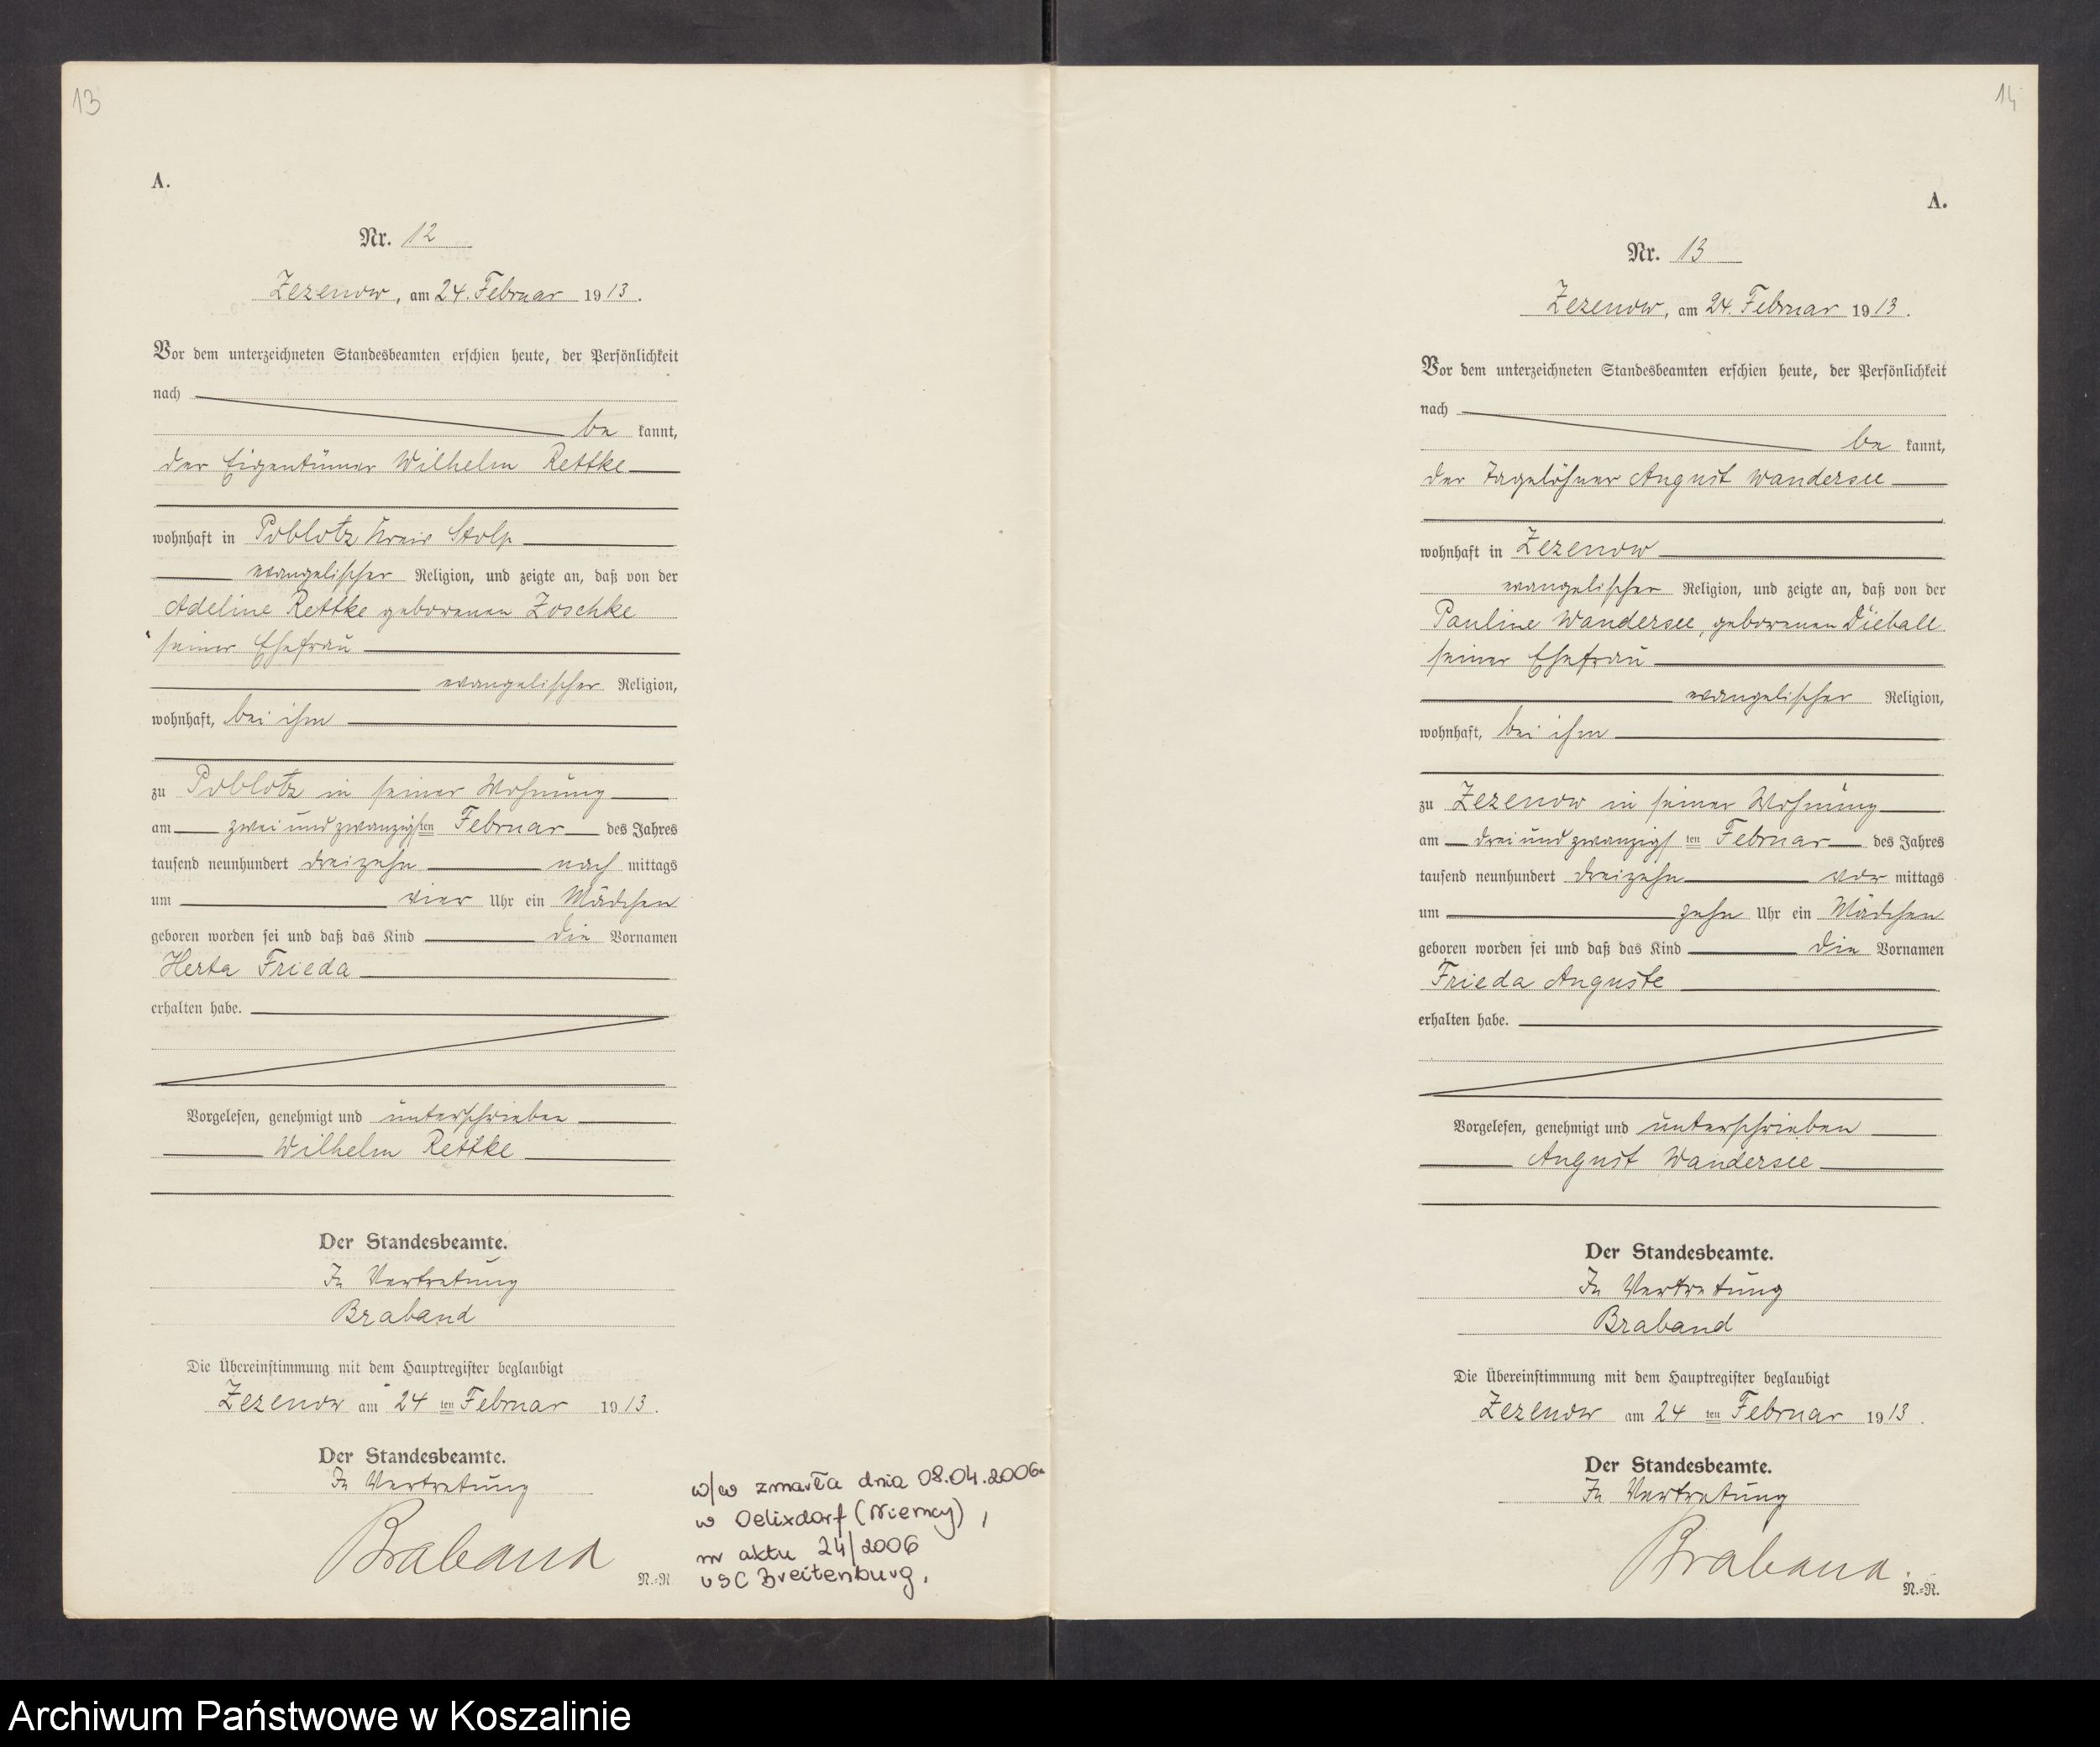 13
A.
Nr. 12
Zezenow, am 24. Februar 1913.
Vor dem unterzeichneten Standesbeamten erschien heute, der Persönlichkeit
nach
be kannt,
der Eigentümer Wilhelm Rettke
wohnhaft in Poblotz Kreis Stolp
evangelischer Religion, und zeigte an, daß von der
Adeline Rettke geborenen Zoschke
seiner Ehefrau
evangelischer Religion,
wohnhaft, bei ihm
zu Poblotz in seiner Wohnung
am zwei und zwanzigsten Februar des Jahres
tausend neunhundert dreizehn nach mittags
um vier Uhr ein Mädchen
geboren worden sei und daß das Kind die Vornamen
Herta Frieda
erhalten habe.
Vorgelesen, genehmigt und unterschrieben
Wilhelm Rettke
Der Standesbeamte.
In Vertretung
Braband
Die Übereinstimmung mit dem Hauptregister beglaubigt
Zezenow am 24 ten Februar 1913.
Der Standesbeamte.
In Vertretung
Braband
N.-R.
w/w zmarła dnia 08.04.2006
w Oelixdorf (Niemcy),
nr aktu 24/2006
USC Breitenburg.
14
A.
Nr. 13
Zezenow, am 24. Februar 1913.
Vor dem unterzeichneten Standesbeamten erschien heute, der Persönlichkeit
nach
be kannt,
der Tagelöhner August Wandersee
wohnhaft in Zezenow
evangelischer Religion, und zeigte an, daß von der
Pauline Wandersee, geborenen Dieball
seiner Ehefrau
evangelischer Religion,
wohnhaft, bei ihm
zu Zezenow in seiner Wohnung
am drei und zwanzigsten Februar des Jahres
tausend neunhundert dreizehn vor mittags
um zehn Uhr ein Mädchen
geboren worden sei und daß das Kind die Vornamen
Frieda Auguste
erhalten habe.
Vorgelesen, genehmigt und unterschrieben
August Wandersee
Der Standesbeamte.
In Vertretung
Braband
Die Übereinstimmung mit dem Hauptregister beglaubigt
Zezenow am 24 ten Februar 1913.
Der Standesbeamte.
In Vertretung
Braband.
N.-R.
Archiwum Państwowe w Koszalinie